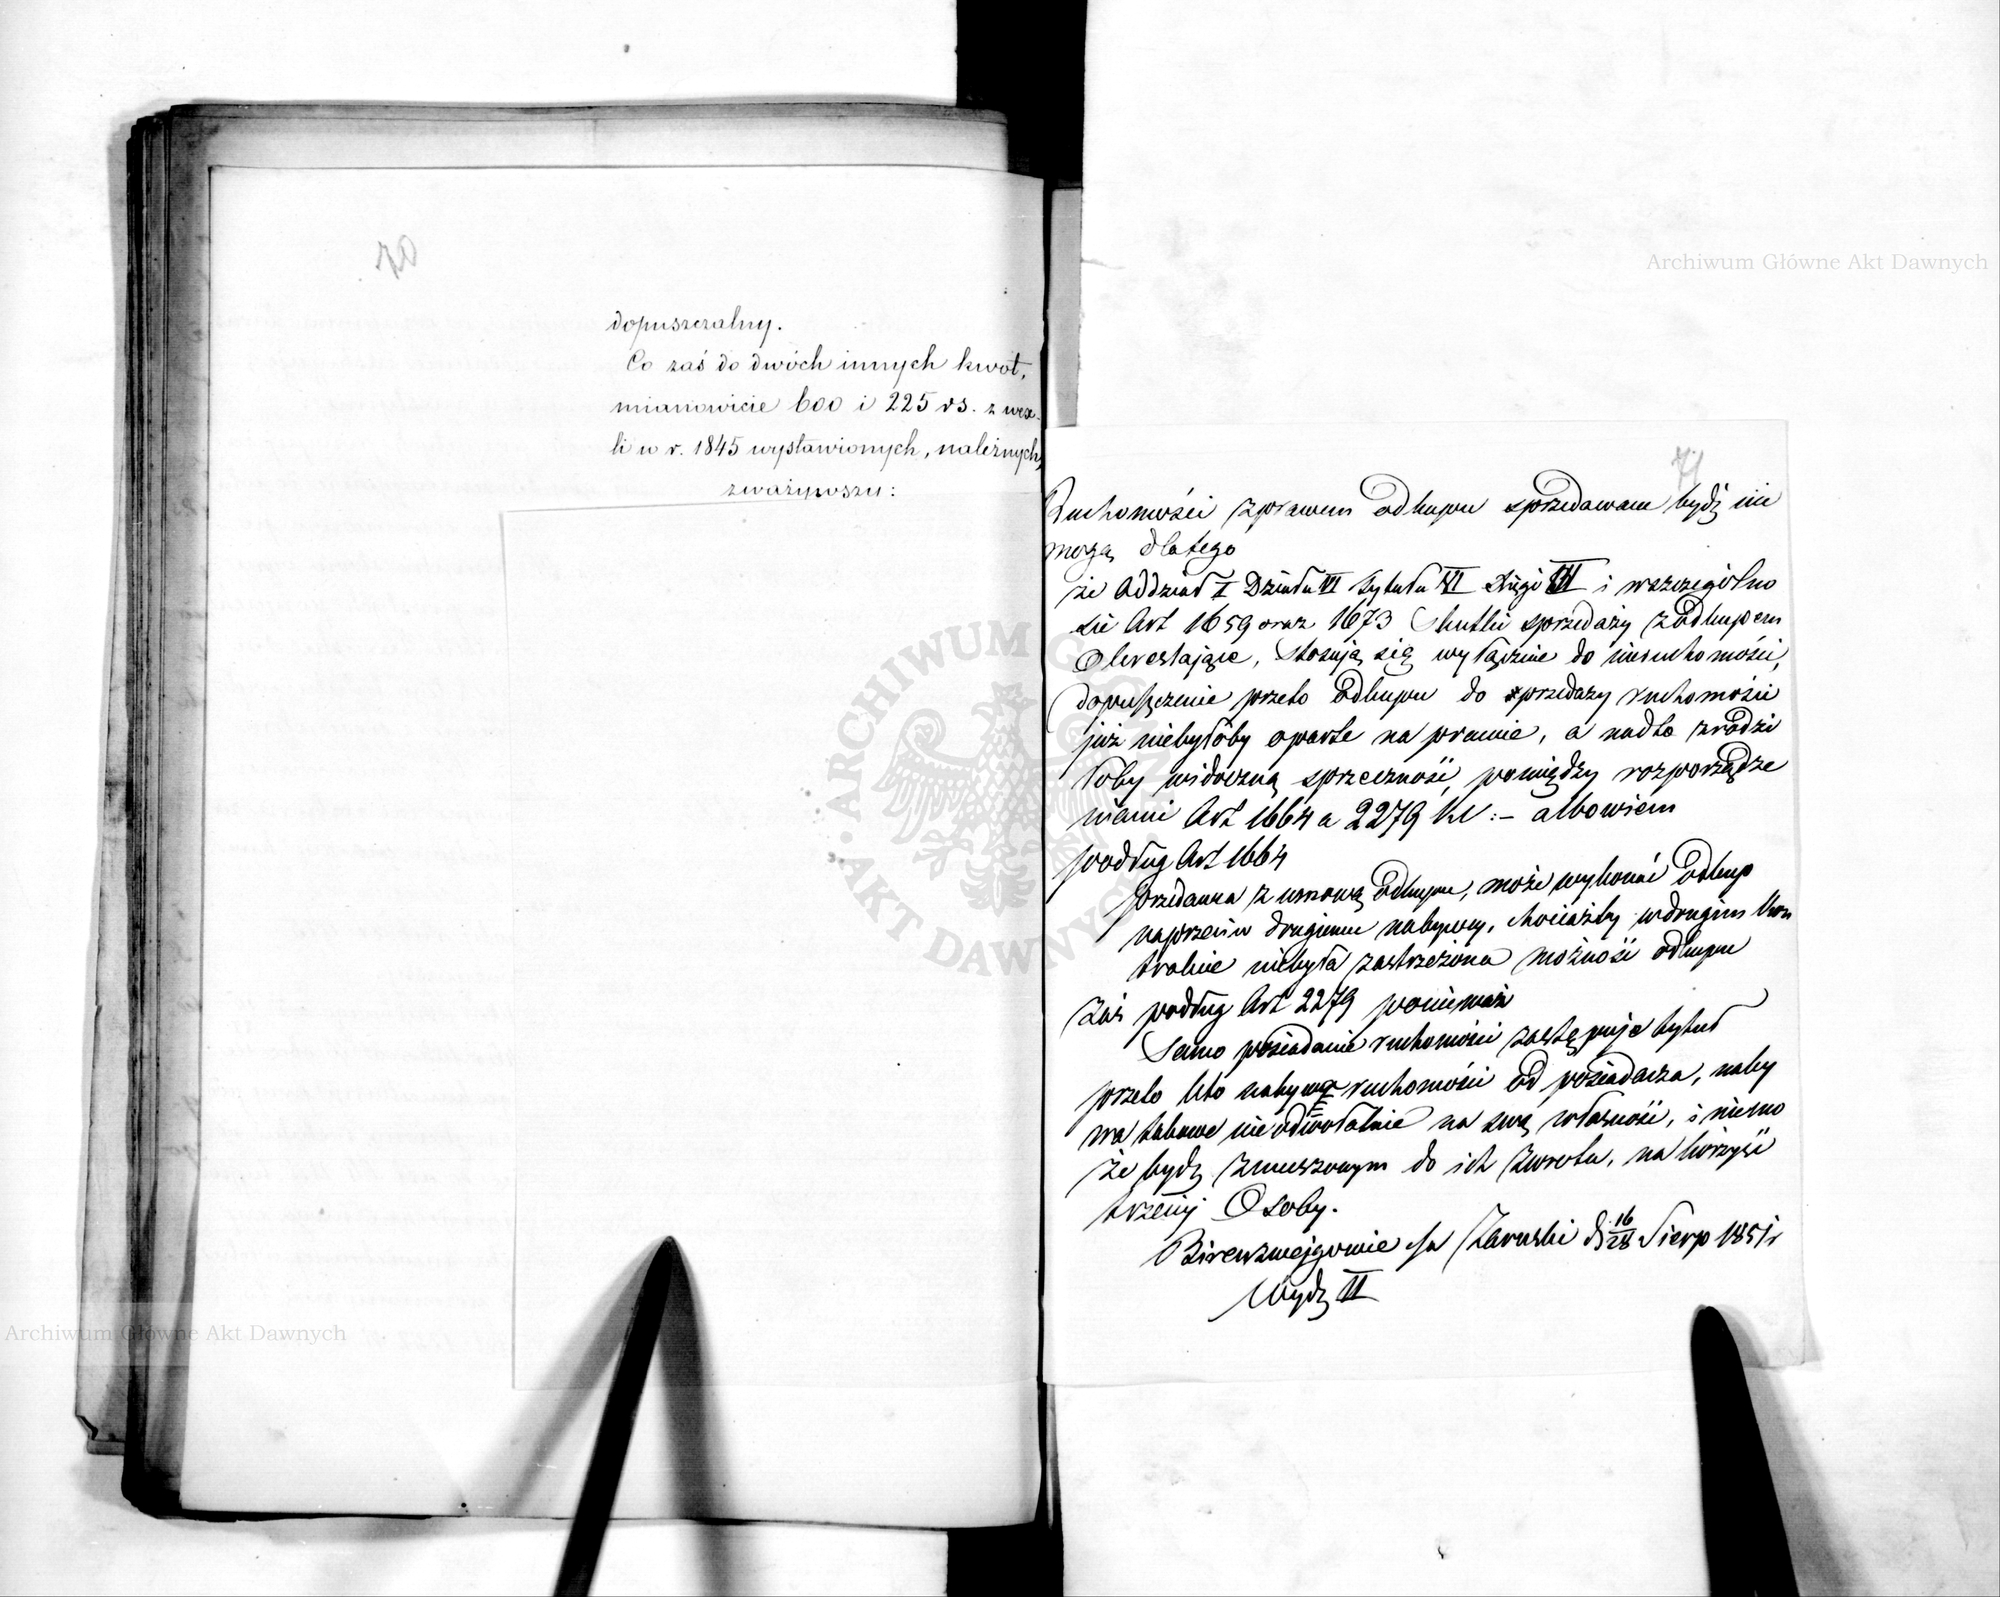 70
dopuszczalny.
Co zaś do dwóch innych kwot,
mianowicie 600 i 225 rs. z wex-
li w r. 1845 wystawionych, należnych,
zważywszy:
71
Ruchomości z prawem odkupu sprzedawane bydź nie
mogą dlatego
że Oddział I Działu VI Tytułu VI Księgi III i wszczególno
ści Art 1659 oraz 1673 Skutki sprzedaży z odkupem
Okreslające, stosują się wyłącznie do nieruchomości,
dopuszczenie przeto odkupu do sprzedazy ruchomości
już niebyłoby oparte na prawie, a nadto zrodzi
łoby widoczną sprzeczność, pomiędzy rozporządze
niami Art 1664 a 2279 KC :- albowiem
podług Art 1664
przedawca z umową odkupu, może wykonać odkup
naprzeciw drugiemu nabywcy, chociażby wdrugim kon
trakcie niebyła zastrzeżona możność odkupu
Zas podług Art 2279 ponieważ
Samo posiadanie ruchomości zastępuje tytuł
przeto kto nabywa ruchomości od posiadacza, naby
wa takowe nieodwołalnie na swą własność, i niemo
że bydź zmuszonym do ich zwrotu, na korzyść
trzeciej Osoby.
Birenzwejgowie /a Zaruski d 16/28 Sierp 1851 r
Wydz II
Archiwum Główne Akt Dawnych
Archiwum Główne Akt Dawnych
ARCHIWUM GŁÓWNE AKT DAWNYCH